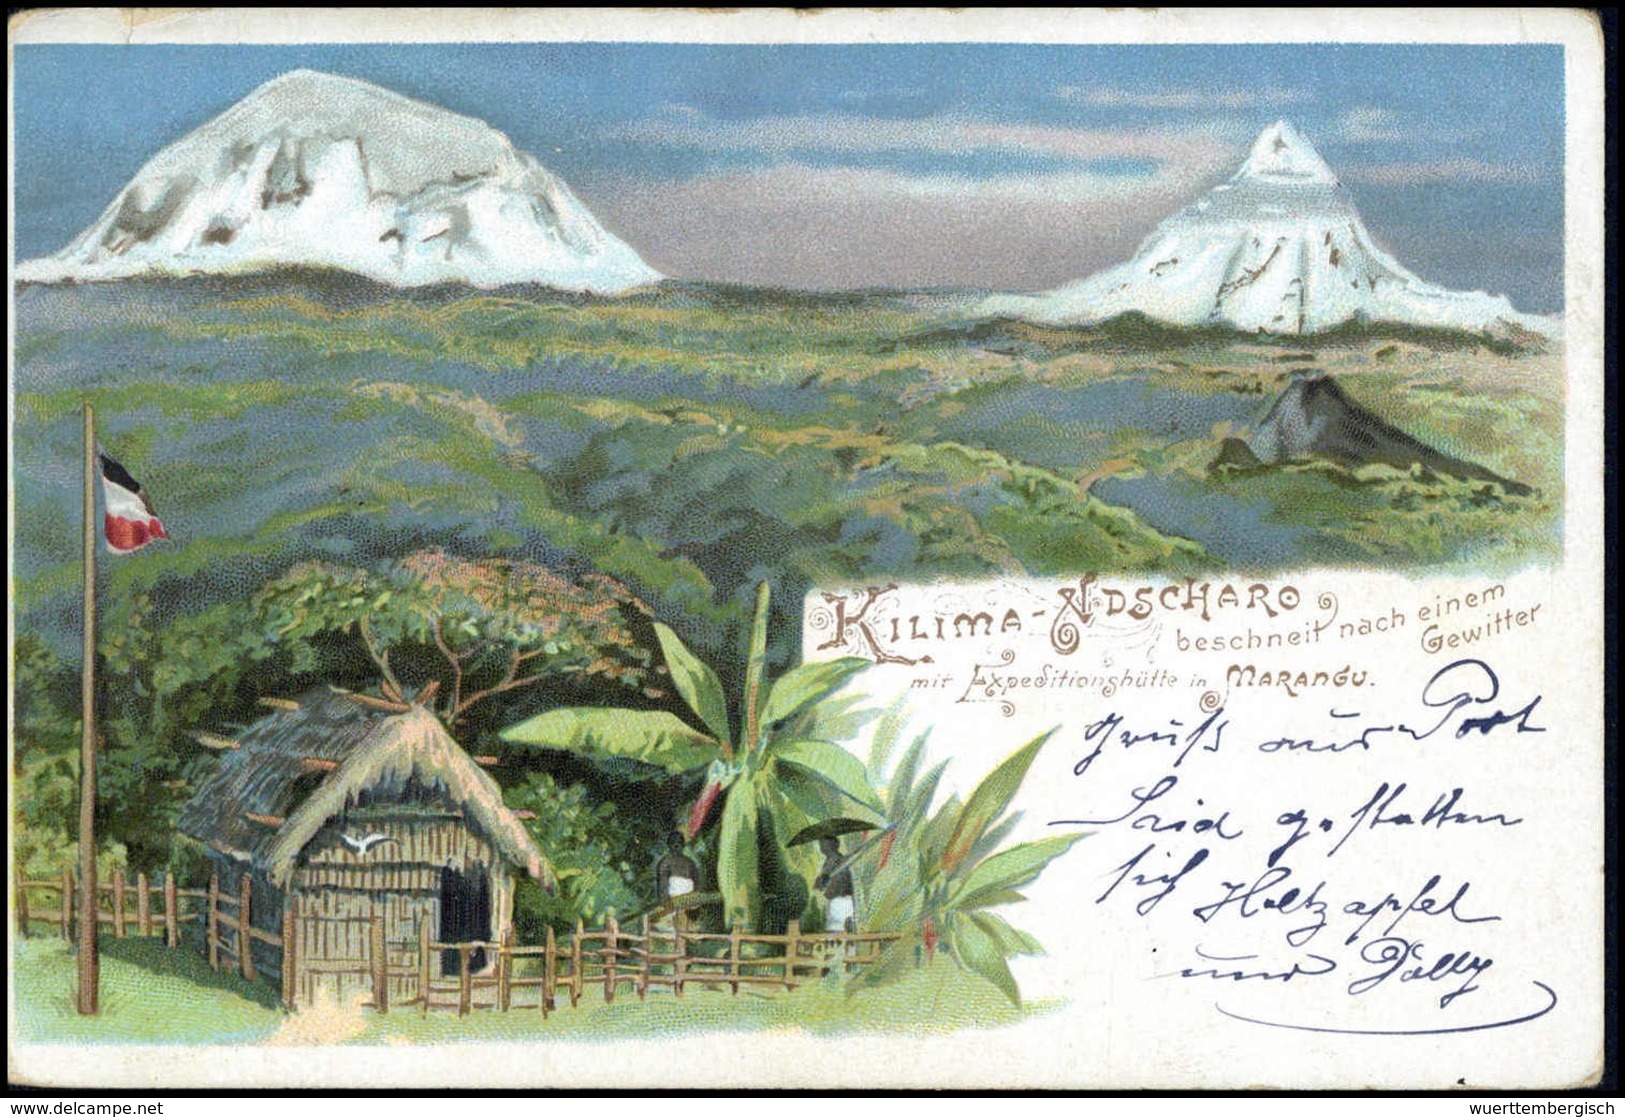 Kilima-Ndscharo
beschneit nach einem
Gewitter
mit Expeditionshütte in Marangu.
Gruß aus Port
Said gestatten
sich Holtzapfel
und Dolly
delcampe.net
wuerttembergisch